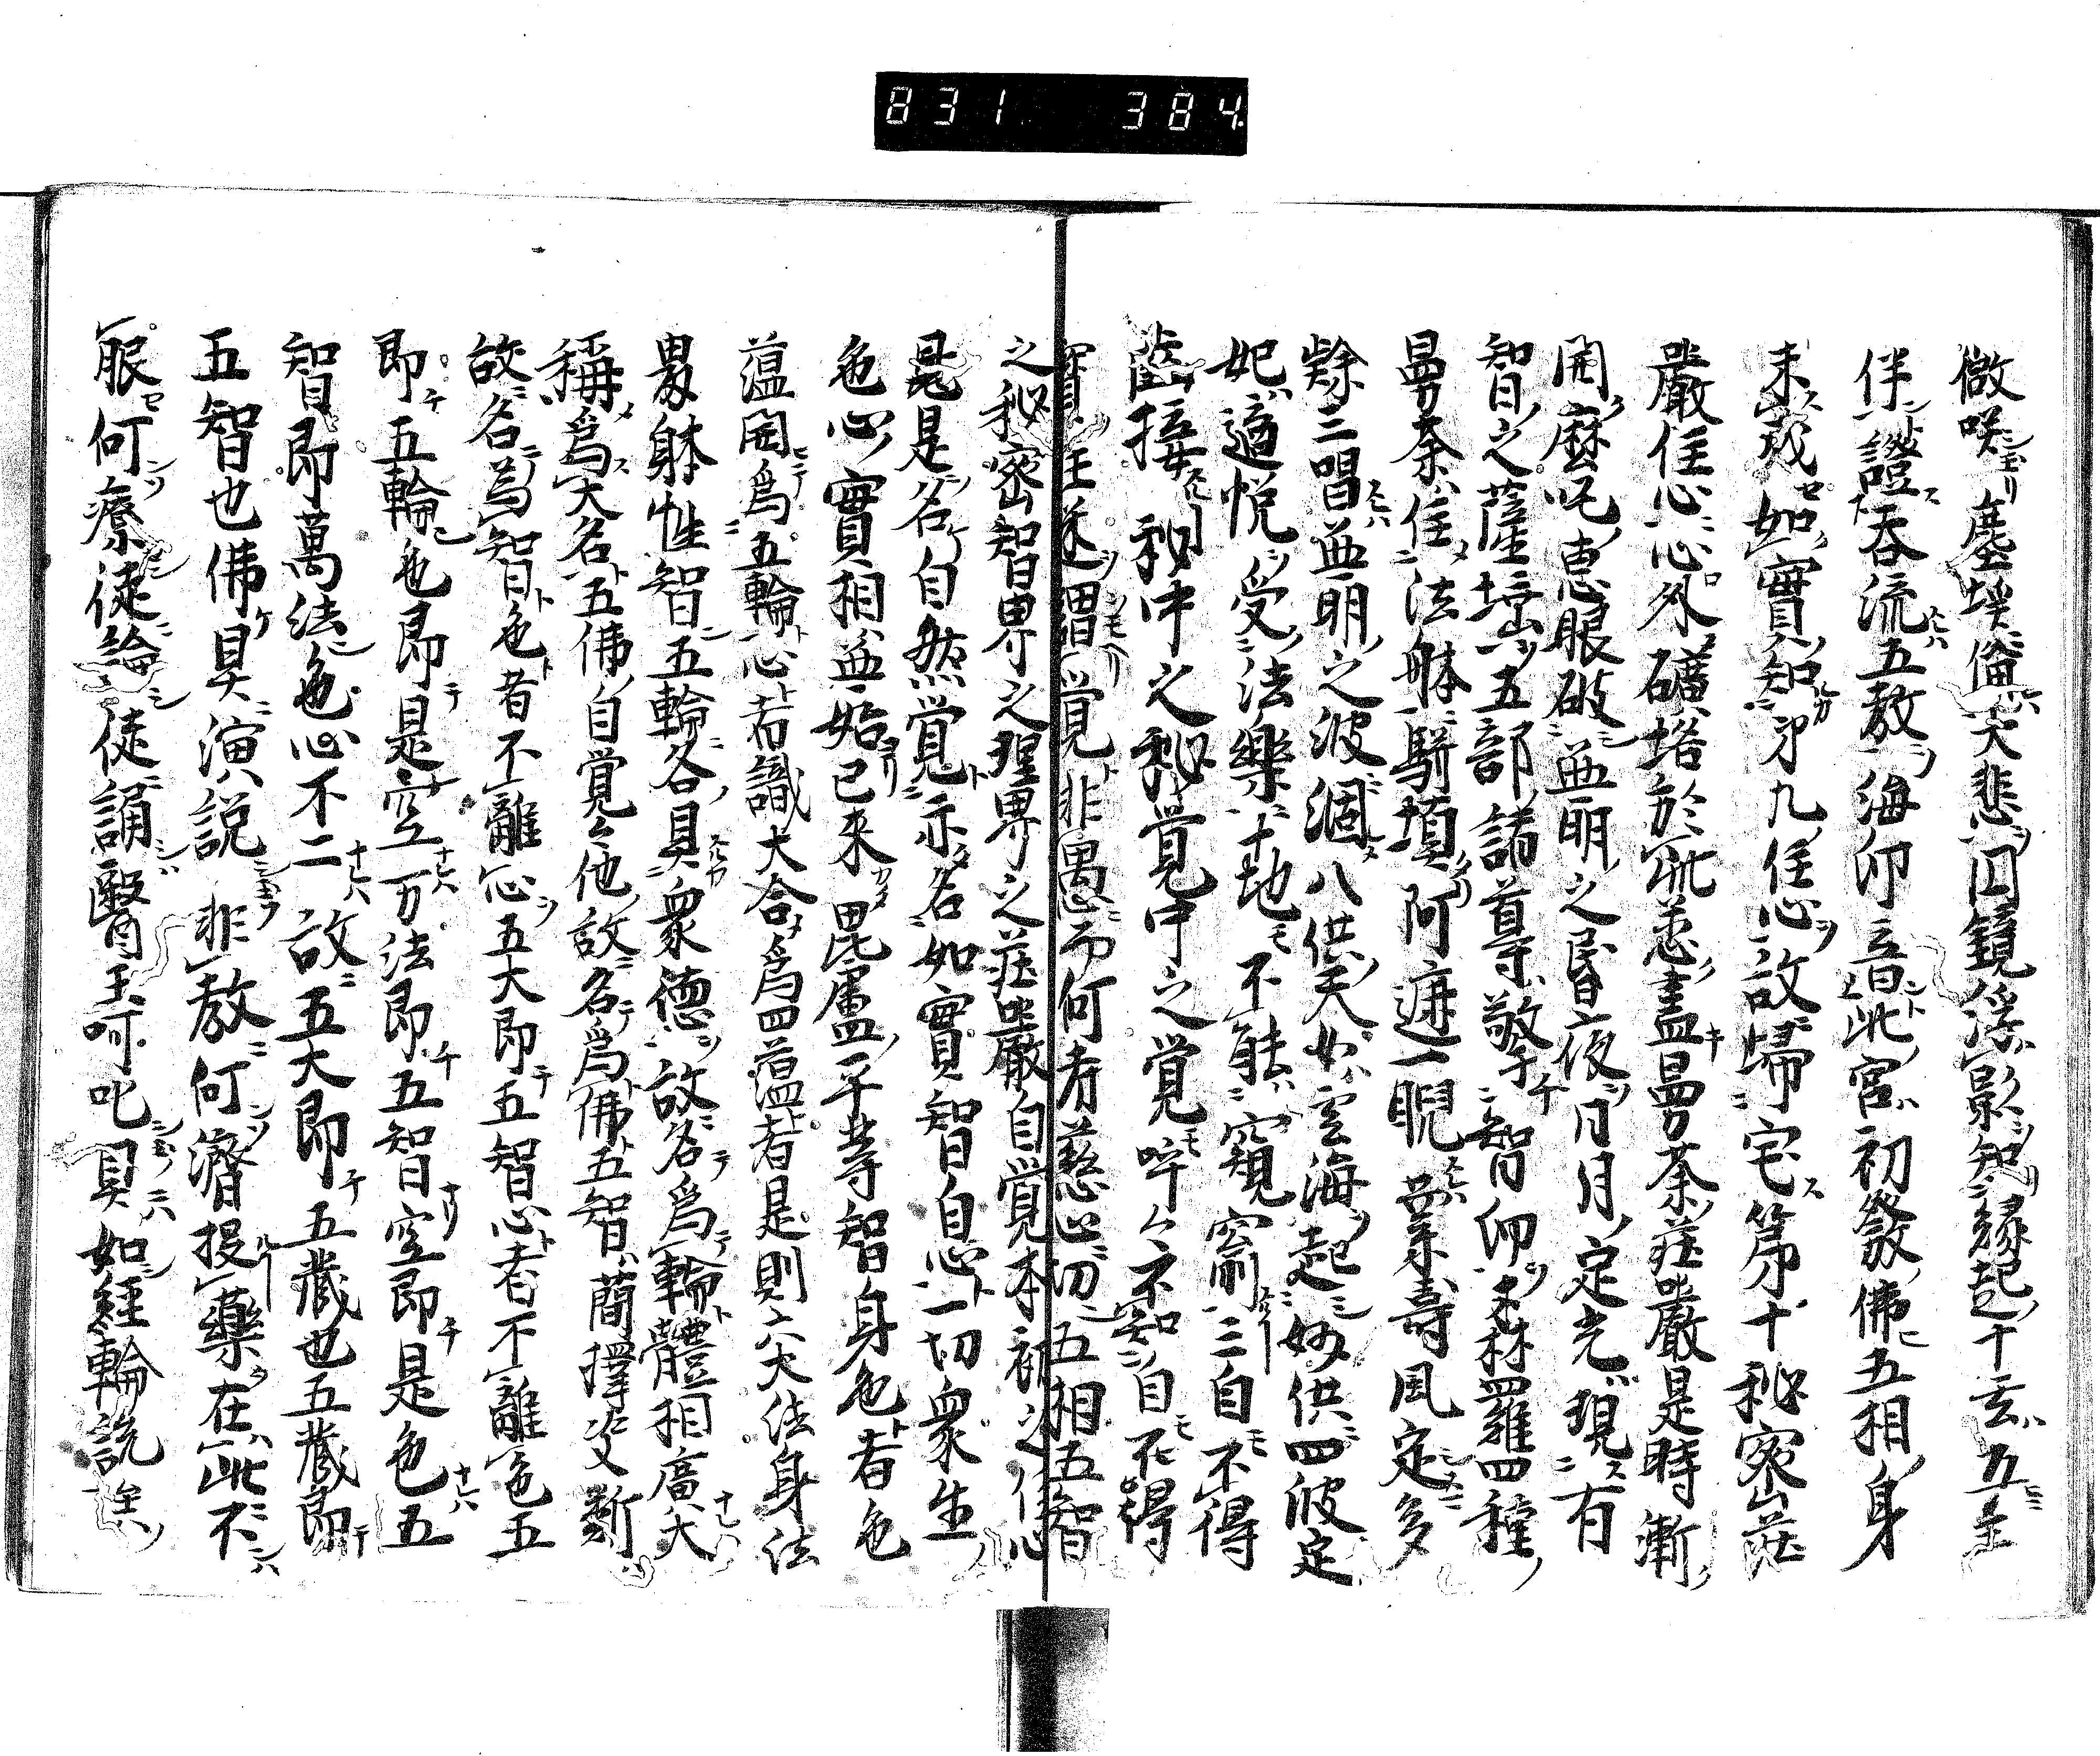 831 384
微咲塵埃倫大悲円鏡浮影知縁起十玄五全
伴證吞流五教海印音此宮初發佛五相身
未成如實知第九住心故帰宅第十秘密莊
嚴住心心外礦垢於此悉盡曼荼莊嚴是時漸
開麽吒恵眼破無明之昏夜日月定光現有
智之薩埵五部諸尊敬手智印森羅四種
曼荼住法躰駢填阿遮一睨業壽風定多
隸三唱無明之波涸八供天女雲海起妙供四波定
妃適悦受法樂十地不能窺窬三自不得
齒接秘中之秘覺中之覺吽々不知自不得
寶玉迷謂覺非愚而何考慈心切五相五智
之秘密智界之理界之莊嚴自覺本初之住心
是是名自然覺示名如實智自心一切衆生
色心實相無始已来毘盧平等智身色者色
薀開爲五輪心者識大合爲四薀者是則六大法身法
界躰性智五輪各具衆德故名爲輪體相廣大
稱爲大名五佛自覺々他故名爲佛五智簡擇姿斷
故名爲智色者不離心五大即五智心者不離色五
即五輪也即是空万法即五智空即是色五
智即萬法色心不二故五大即五藏也五藏即
五智也佛具演說非教何濳投藥在此不
服何療徒論徒誦醫王呵叱具如經輪說矣